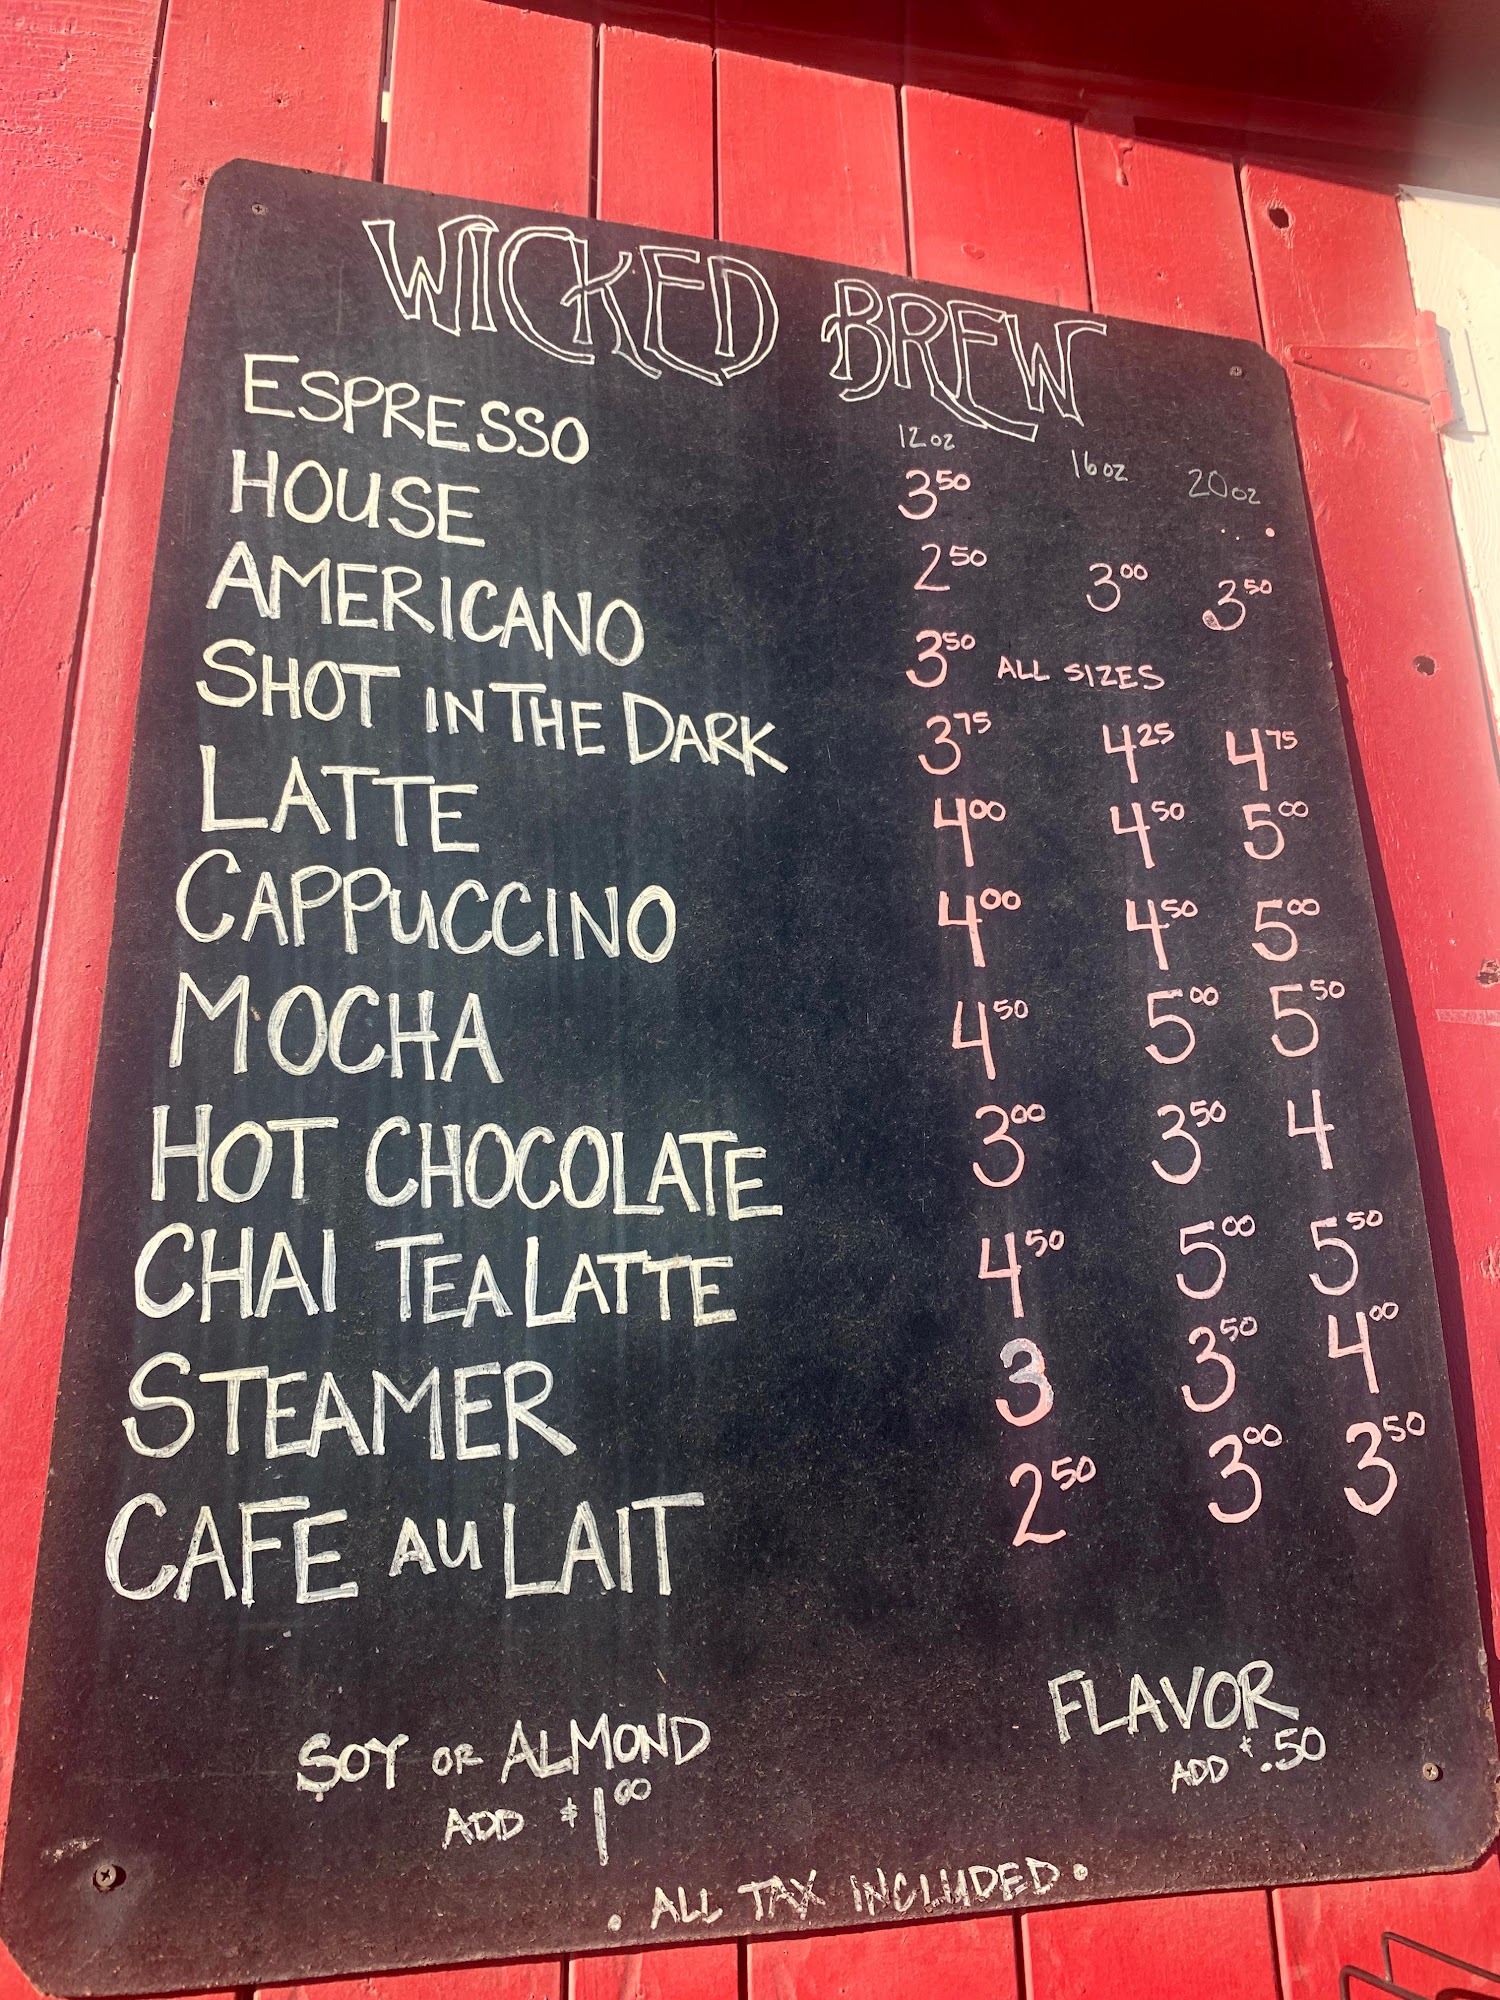 WICKED BREW
12oz 16oz 20oz
ESPRESSO 3⁵⁰
HOUSE 2⁵⁰ 3⁰⁰ 3⁵⁰
AMERICANO 3⁵⁰ ALL SIZES
SHOT IN THE DARK 3⁷⁵ 4²⁵ 4⁷⁵
LATTE 4⁰⁰ 4⁵⁰ 5⁰⁰
CAPPUCCINO 4⁰⁰ 4⁵⁰ 5⁰⁰
MOCHA 4⁵⁰ 5⁰⁰ 5⁵⁰
HOT CHOCOLATE 3⁰⁰ 3⁵⁰ 4
CHAI TEA LATTE 4⁵⁰ 5⁰⁰ 5⁵⁰
STEAMER 3 3⁵⁰ 4⁰⁰
CAFE AU LAIT 2⁵⁰ 3⁰⁰ 3⁵⁰
SOY OR ALMOND
ADD $1⁰⁰
FLAVOR
ADD $.50
. ALL TAX INCLUDED .